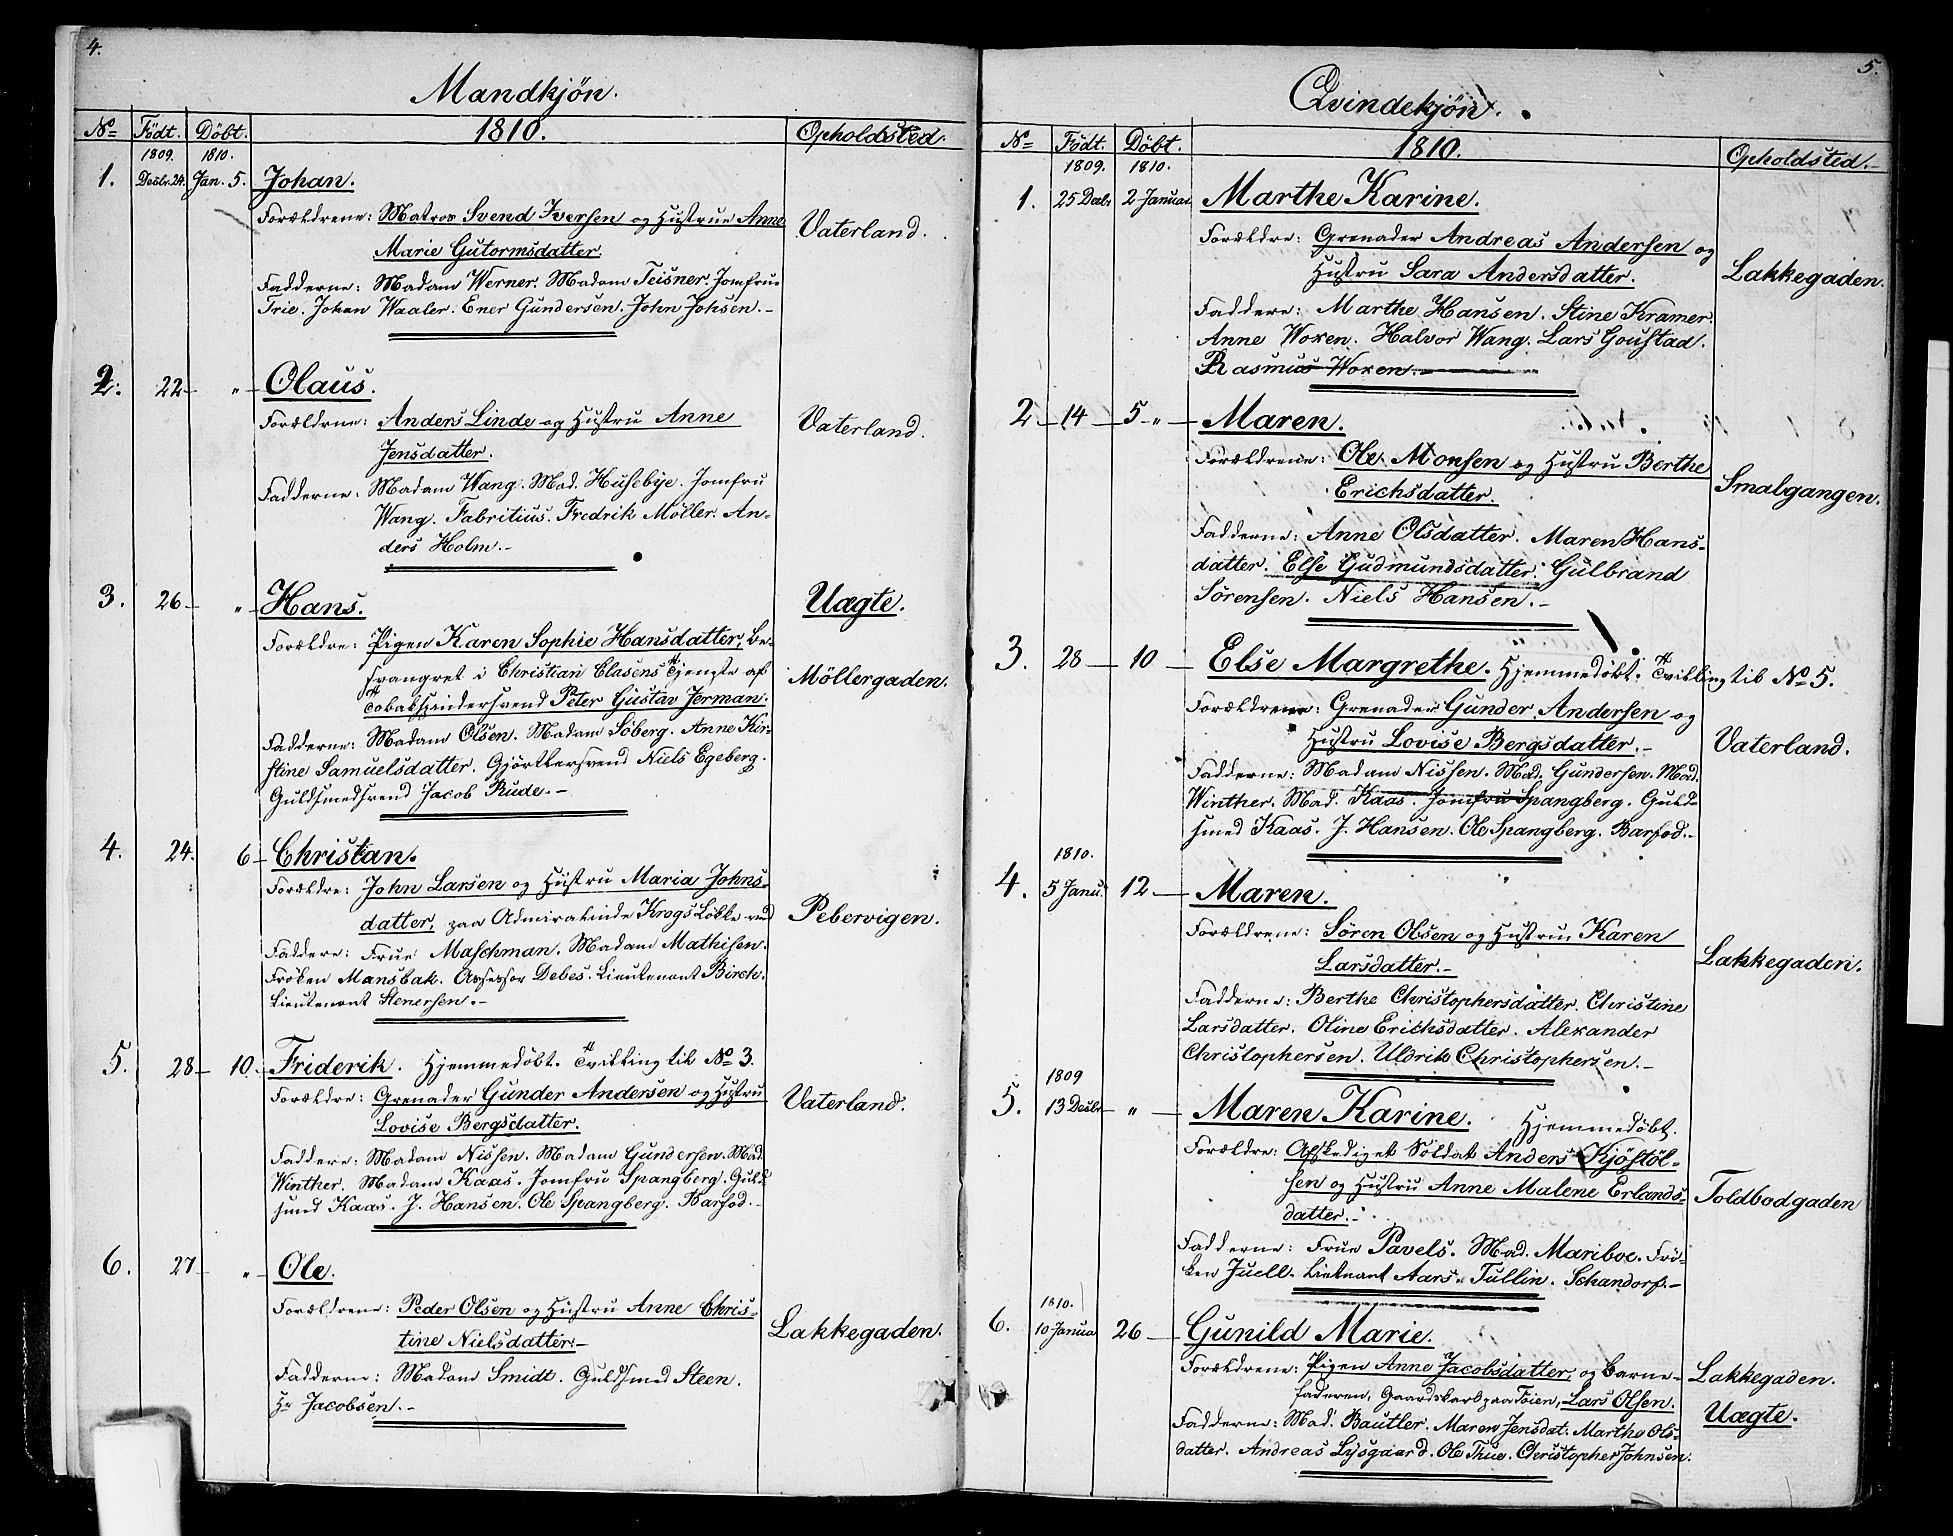 4.
Mandkjön.
No Födt. Döbt. 1810. Opholdsted.
1809. 1810.
1. Decbr. 24. Jan. 5. Johan.
Forældrene: Matros Svend Iversen og Hustrue Anne
Marie Gutormsdatter.
Vaterland.
Fadderne: Madam Werner. Madam Teisner. Jomfrue
Trie. Johan Waaler. Ener Gundersen. John Johsen.-
2. 22- "- Olaus.
Forældrne: Anders Linde og Hustru Anne
Jensdatter.
Vaterland.
Fadderne: Madam Wang. Mad. Husebye. Jomfru
Wang. Fabritius. Fredrik Möller. An-
ders Holm.-
3. 26- "- Hans. Uægte.
Forældre: Pigen Karen Sophie Hansdatter, be-
svangret i Christian Clasens Tjenste af
Tobakspindersvend Peter Gustav Jerman.
Möllergaden.
Fadderne: Madam Olsen. Madam Soberg. Anne Kir-
stine Samuelsdatter. Gjörtlersvend Niels Egeberg.
Guldsmedsvend Jacob Rude.-
4. 24. 6- Christian.
Forældre: John Larsen og Hustru Maria Johns-
datter, paa Admiralinde Krogs Lökke ved
Pebervigen.
Faddere: Frue Maschman. Madam Mathisen.
Fröken Mansbak. Assessor Debes. Lieutenant Birch.
Lieutenant Stenersen.-
5. 28- 10. Friderik. Hjemmedöbt. Tvilling til No 3.
Forældre: Grenader Gunder Andersen og Hustru
Lovise Bergsdatter.
Vaterland.
Faddere: Madam Nissen. Madam Gundersen. Mad.
Winther. Madam Kaas. Jomfru Spangberg. Guld-
smed Kaas. J. Hansen. Ole Spangberg. Barfod.-
6. 27- "- Ole.
Forældrene: Peder Olsen og Hustru Anne Chris-
tine Nielsdatter.-
Lakkegaden.
Fadderne: Madam Smidt. Guldsmed Steen.
Hr Jacobsen.-
5.
Qvindekjön.
No Födt. Döbt. 1810. Opholdsted.-
1809. 1810.
1. 25 Decbr 2 Januar. Marthe Karine.
Forældre: Grenader Andreas Andersen og
Hustru Sara Andersdatter.
Lakkegaden.
Faddere: Marthe Hansen. Stine Kramer.
Anne Woxen. Halvor Wang. Lars Goustad.
Rasmus Woxen.-
2- 14- 5-"- Maren.
Forældrene: Ole Monsen og Hustru Berthe
Erichsdatter.
Smalgangen.
Fadderne: Anne Olsdatter. Maren Hans-
datter. Else Gudmundsdatter. Gulbrand
Sörensen. Niels Hansen.-
3. 28- 10- Else Margrethe. Hjemmedöbt. Tvilling til No 5.
Forældrene: Grenader Gunder Andersen og
Hustru Lovise Bergsdatter.-
Vaterland.
Fadderne: Madam Nissen. Mad. Gundersen. Mad.
Winther. Mad. Kaas. Jomfru Spangberg. Guld-
smed Kaas. J. Hansen. Ole Spangberg. Barfod.-
1810.
4. 5 Janu. 12- Maren.
Forældrene: Sören Olsen og Hustru Karen
Larsdatter.-
Lakkegaden.
Fadderne: Berthe Christophersdatter. Christine
Larsdatter. Oline Erichsdatter. Alexander
Christophersen. Uldrik Christophersen.-
1809
5. 13 Decbr- "- Maren Karine. Hjemmedöbt.
Forældre: Afskediget Soldat Anders Kjöstöl-
sen og Hustru Anne Malene Erlands-
datter.-
Toldbodgaden
Fadderne: Frue Pavels. Mad. Mariboe. Frö-
ken Juell. Lieutnant Aars. Tullin. Schandorf.-
1810.
6. 10 Janua 26- Gunild Marie.
Forældrene: Pigen Anne Jacobsdatter, og Barne-
faderen, Gaardskarl paa Töien, Lars Olsen.
Lakkegaden.
Uægte.
Fadderne: Mad. Bautler. Maren Jensdat. Marthe Ols-
datter. Andreas Lysgaard. Ole Thue. Christopher Johnsen.